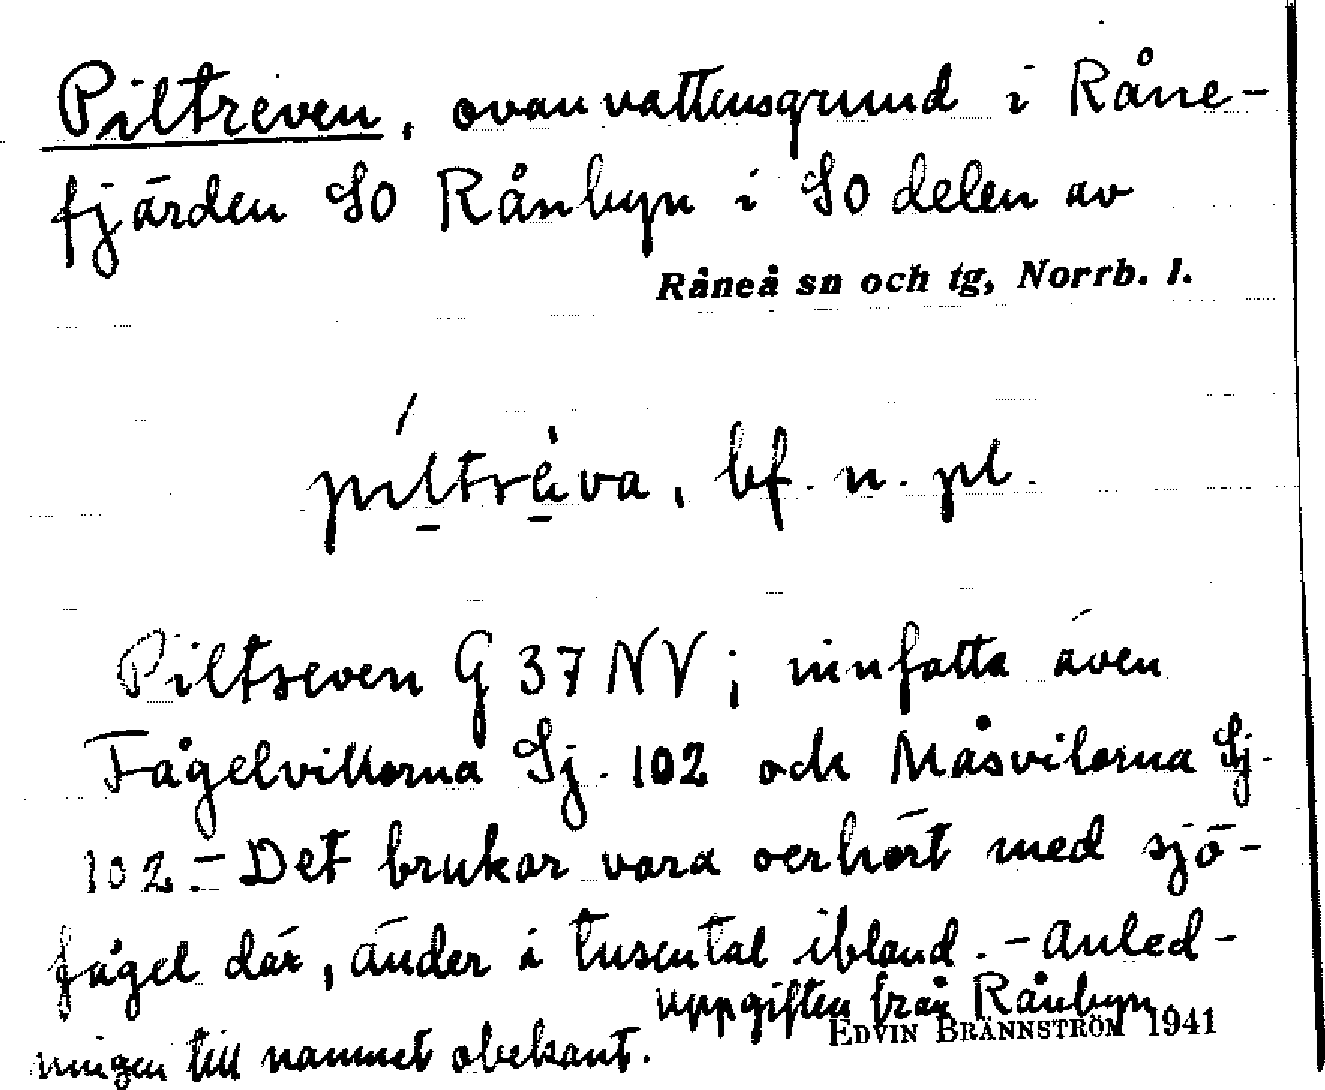 Piltreven, ovanvattensgrund i Råne-
fjärden SO Rånbyn i SO delen av
Råneå sn och tg, Norrb. l.
piltrèva, bf. n. pl.
Piltreven G 37 NV; innfatta även
Fågelvillorna Sj. 102 och Måsvilorna Sj.
102. – Det brukar vara oerhört med sjö-
fågel där, änder i tusental ibland. – Anled-
uppgiften från Rånbyn
EDVIN BRÄNNSTRÖM 1941
ningen till namnet obekant.